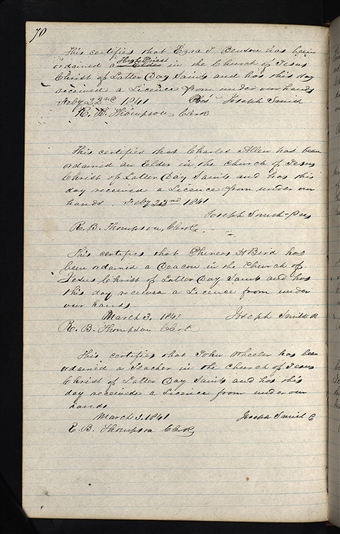 70
This certifies that Ezra T. Benson has been
High Priest
ordained a Elder in the Church of Jesus
Christ of Latter Day Saints and has this day
received a Licence from under our hands
Feby 22nd 1841 Pres Joseph Smith
R. B. Thompson Clerk
This certifies that Charles Allen has been
ordained an Elder in the Church of Jesus
Christ of Latter Day Saints and has this
day received a Licence from under our
hands Feby 22nd 1841
Joseph Smith Pres
R. B. Thompson, Clerk
This certifies that Phineas H Bird has
been ordained a Deacon in the Church of
Jesus Christ of Latter Day Saints and has
this day receive a Licence from under
our hands
March 3, 1841 Joseph Smith
R. B. Thompson Clerk
This certifies that John Wheeler has been
ordained a Teacher in the Church of Jesus
Christ of Latter Day Saints and has this
day received a Licence from under our
hands
March 3. 1841 Joseph Smith
R. B. Thompson Clerk